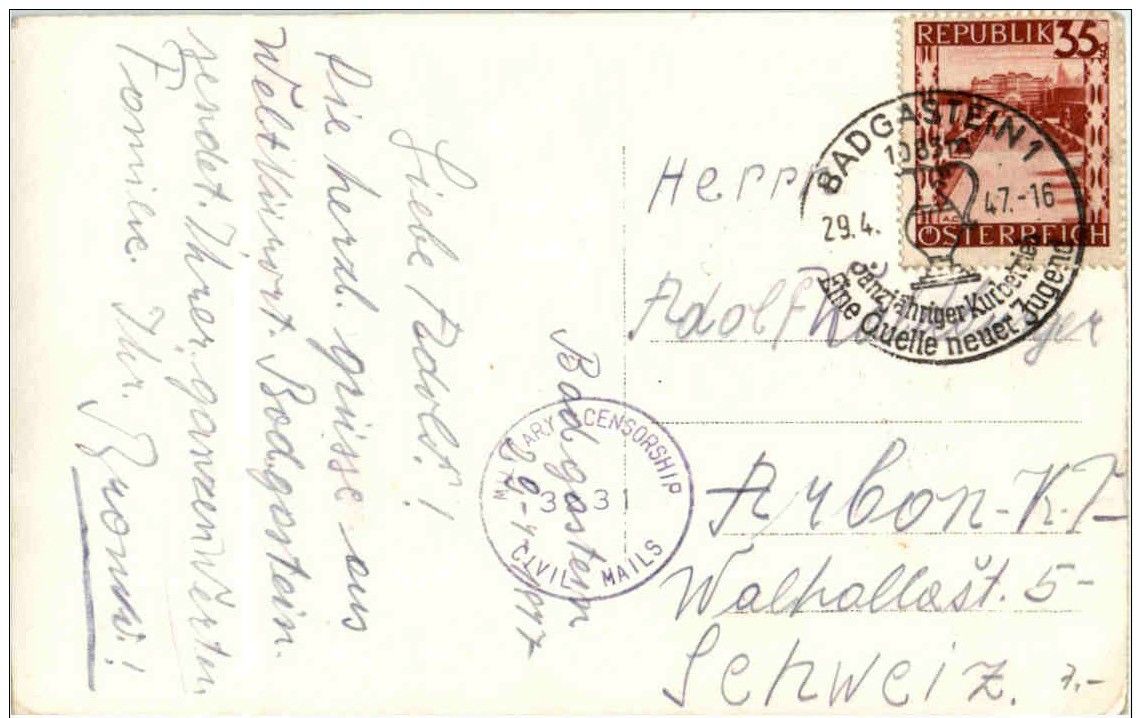 Bad gastein
29-4-1947
Liebe Adolf!
Die herzl. grüsse aus
Weltkurort. Badgastein.
sendet. Ihrer, ganzen Werten.
Familie. Ihr.
REPUBLIK 35 g
ÖSTERREICH
BADGASTEIN 1
1083m
29.4. 47.-16
Ganzjähriger Kurbetrieb
Eine Quelle neuer Jugend
MILITARY CENSORSHIP
3 31
CIVIL MAILS
Herrn
Adolf
Arbon-K.T
Walhallast. 5-
Schweiz.
7.-